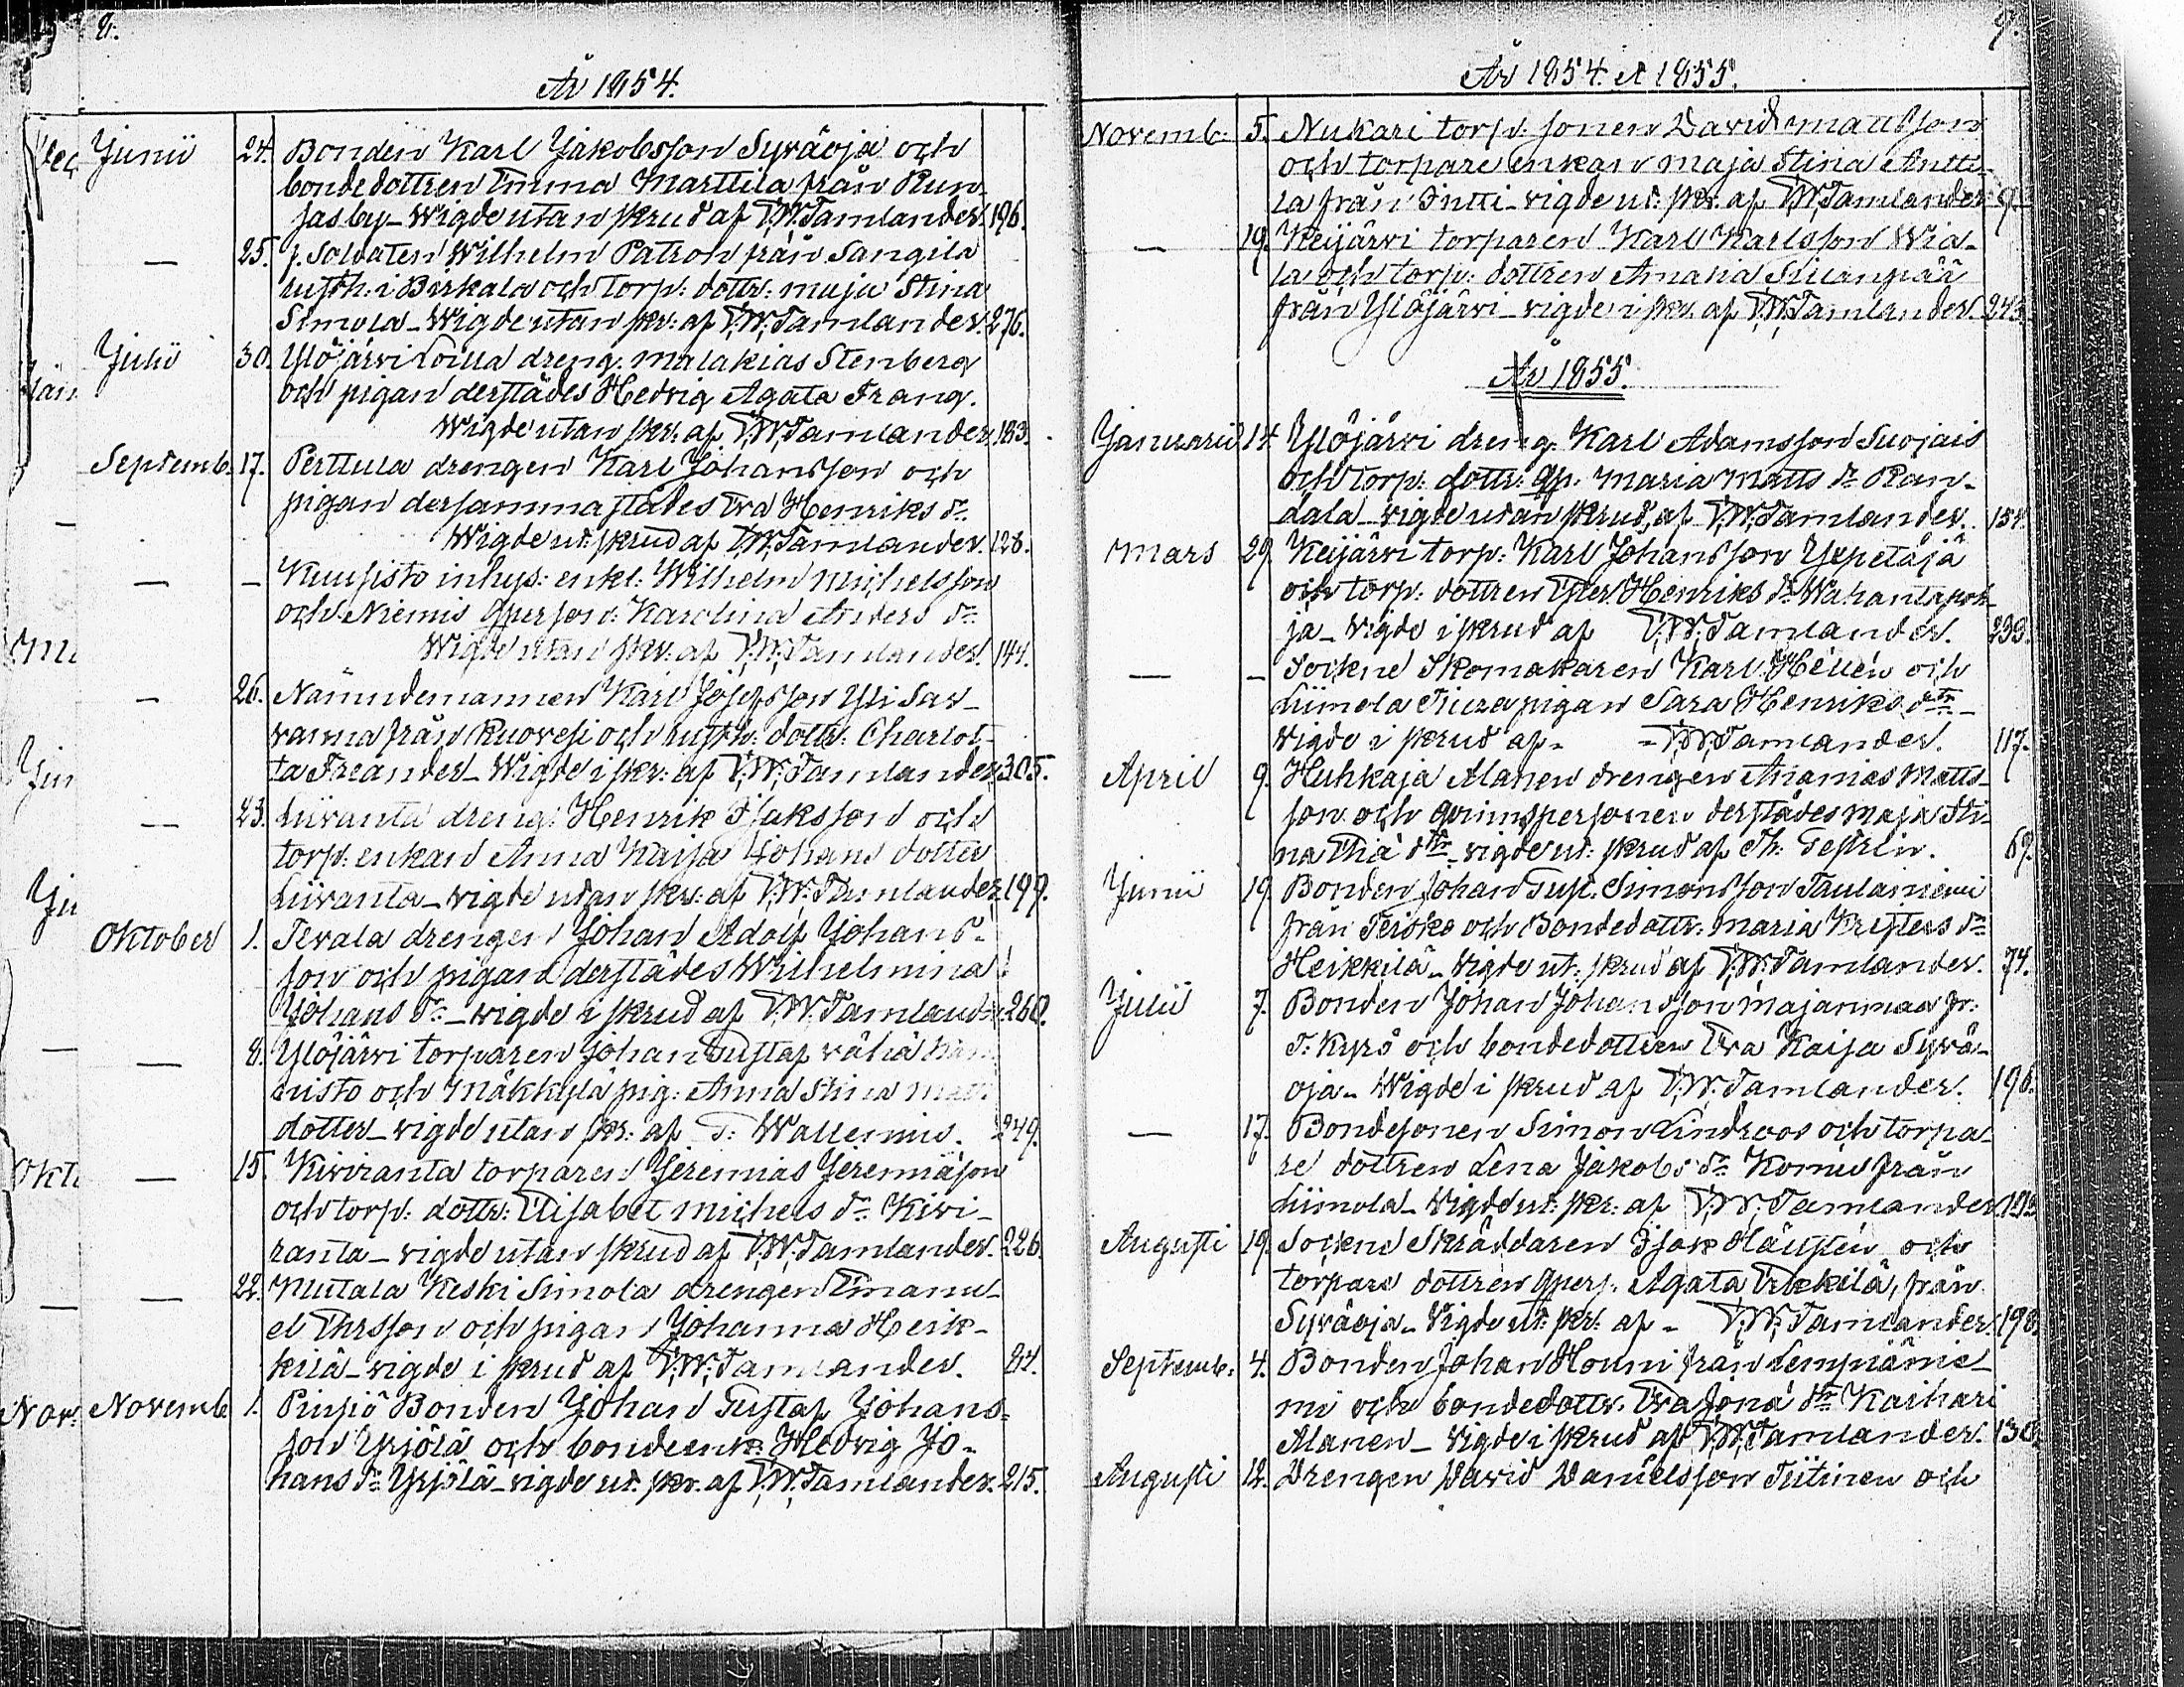 8.
År 1854.
Junii 24. Bonden Karl Jakobsson Syväoja och
bondedottren Emma Marttila från Run-
jasby - Wigde utan skrud af T.W. Tamlander. 196.
— 25. f. Soldaten Wilhelm Patron från Sangila
rusth: i Birkala och torp: dottr: Maja Stina
Simola - Wigde utan skr: af T.W. Tamlander. 276.
Julii 30. Ylöjärvi Loilla dreng. Malakias Stenberg
och pigan derstädes Hedvig Agata Frang.
Wigde utan skr: af T.W. Tamlander. 183.
Septemb. 17. Perttula drengen Karl Johansson och
pigan dersammastädes Eva Henriks dr
Wigde ut: skrud af T.W. Tamlander. 128.
— - Kuusisto inhys: enkl: Wilhelm Michelsson
och Niemis qperson: Karolina Anders dr
Wigde utan skr: af T.W. Tamlander. 144.
— 26. Nämndemannen Karl Josefsson Yli Sar-
vanna från Ruovesi och rusth: dottr: Charlot-
ta Freander - Wigde i skr: af T.W. Tamlander. 305.
— 23. Liivanta dreng: Henrik Isaksson och
torp: enkan Anna Kaisa Johans dotter
Liivanta - vigde utan skr: af T.W. Tamlander. 199.
Oktober 1. Tevala drengen Johan Adolf Johans-
son och pigan derstädes Wilhelmina
Johans dr - vigde i skrud af T.W. Tamland 260.
— 8. Ylöjärvi torparen Johan Gustaf vähä
nisto och Mäkkylä pig: Anna Stina
dotter - vigde utan skr: af T: Wallenius. 249.
— 15. Kiviranta torparen Jeremias Jeremiason
och torp: dottr: Elisabet Michels dr Kivi-
ranta - vigde utan skrud af T.W. Tamlander. 226.
— 22. Mutala Keski Simola drengen Emanu-
el Ehrsson och pigan Johanna Heik-
kilä - vigde i skrud af T.W. Tamlander. 24.
Novemb 1. Pinsiö Bonden Johan Gustaf Johans-
son Yrjölä och bondeenk: Hedvig Jo-
hans dr Yrjölä - vigde ut. skr. af T.W. Tamlander. 215.
9.
År 1854. et 1855.
Novemb: 5. Nukari torp: sonen David Mattsson
och torpare enkan Maja Stina Antti-
la från Intti - vigde ut: skr. af T.W. Tamlander 9.
— 19. Keijärvi torparen Karl Karlsson Wia-
la och torp: dottren Amalia
från Ylöjärvi - vigde i skr. af T.W. Tamlander. 243.
År 1855.
Januarii 14. Ylöjärvi dreng. Karl Adamsson Suojais
och torp: dottr: qp. Maria Matts dr Ran-
dala - vigde utan skrud, af T.W. Tamlander. 154.
Mars 29. Keijärvi torp: Karl Johansson
och torp: dottren Ester Henriks dr Wahantapoh-
ja - Vigde i skrud af T.W. Tamlander. 239.
— - Sockne Skomakaren Karl Hellén och
Liimola pigan Sara Henriks dtr -
vigde i skrud af - - T.W. Tamlander. 117.
April 9. Huhkaja Alanen drengen Ananias Matts-
son och qvinspersonen derstädes Maja Sti-
na dtr - vigde ut: skrud af Th: Gestrin. 69.
Junii 19. Bonden Johan Gust. Simonsson Taulaniemi
från Teisko och Bondedottr: Maria Kristers dr
Heikkilä - Vigde ut: skrud af T.W. Tamlander. 74.
Julii 7. Bonden Johan Johansson Majanmaa fr:
T: Kyrö och bondedottren Eva Kaisa Syvä-
oja - Wigde i skrud af T.W. Tamlander. 196.
— 17. Bondesonen Simon Lindroos och torpa-
re dottren Lena Jakobs dr Komu från
Liimola - Vigde ut: skr: af T.W. Tamlander.
Augusti 19. Sockne Skräddaren Isak Hänsten och
torpare dottren qpers. Agata Erkkilä, från
Syväoja - Vigde ut: skr: af - T.W. Tamlander. 198.
Septemb: 4. Bonden Johan Honni från Lempiänie-
mi och bondedottr. Eva Jona dr Kaihari
Alanen - Vigde i skrud af T.W. Tamlander. 130.
Augusti 12. Drengen David Danielsson Tiitinen och